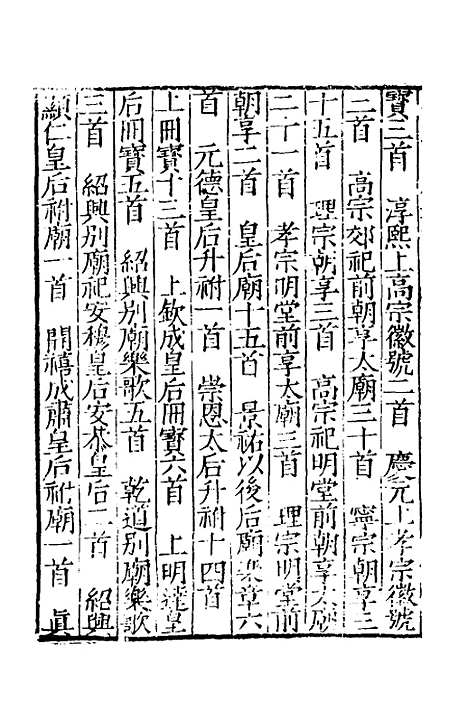 寶三首　淳熙上高宗徽號二首　慶元上孝宗徽號
二首　高宗郊祀前朝享太廟三十首　寧宗朝享三
十五首　理宗朝享三首　高宗祀明堂前朝享太廟
二十一首　孝宗明堂前享太廟三首　理宗明堂前
朝享二首　皇后廟十五首　景祐以後后廟樂章六
首　元德皇后升祔一首　崇恩太后升祔十四首
上冊寶十三首　上欽成皇后冊寶六首　上明達皇
后冊寶五首　紹興別廟樂歌五首　乾道別廟樂歌
三首　紹興別廟祀安穆皇后安恭皇后二首　紹興
顯仁皇后祔廟一首　開禧成肅皇后祔廟一首　眞